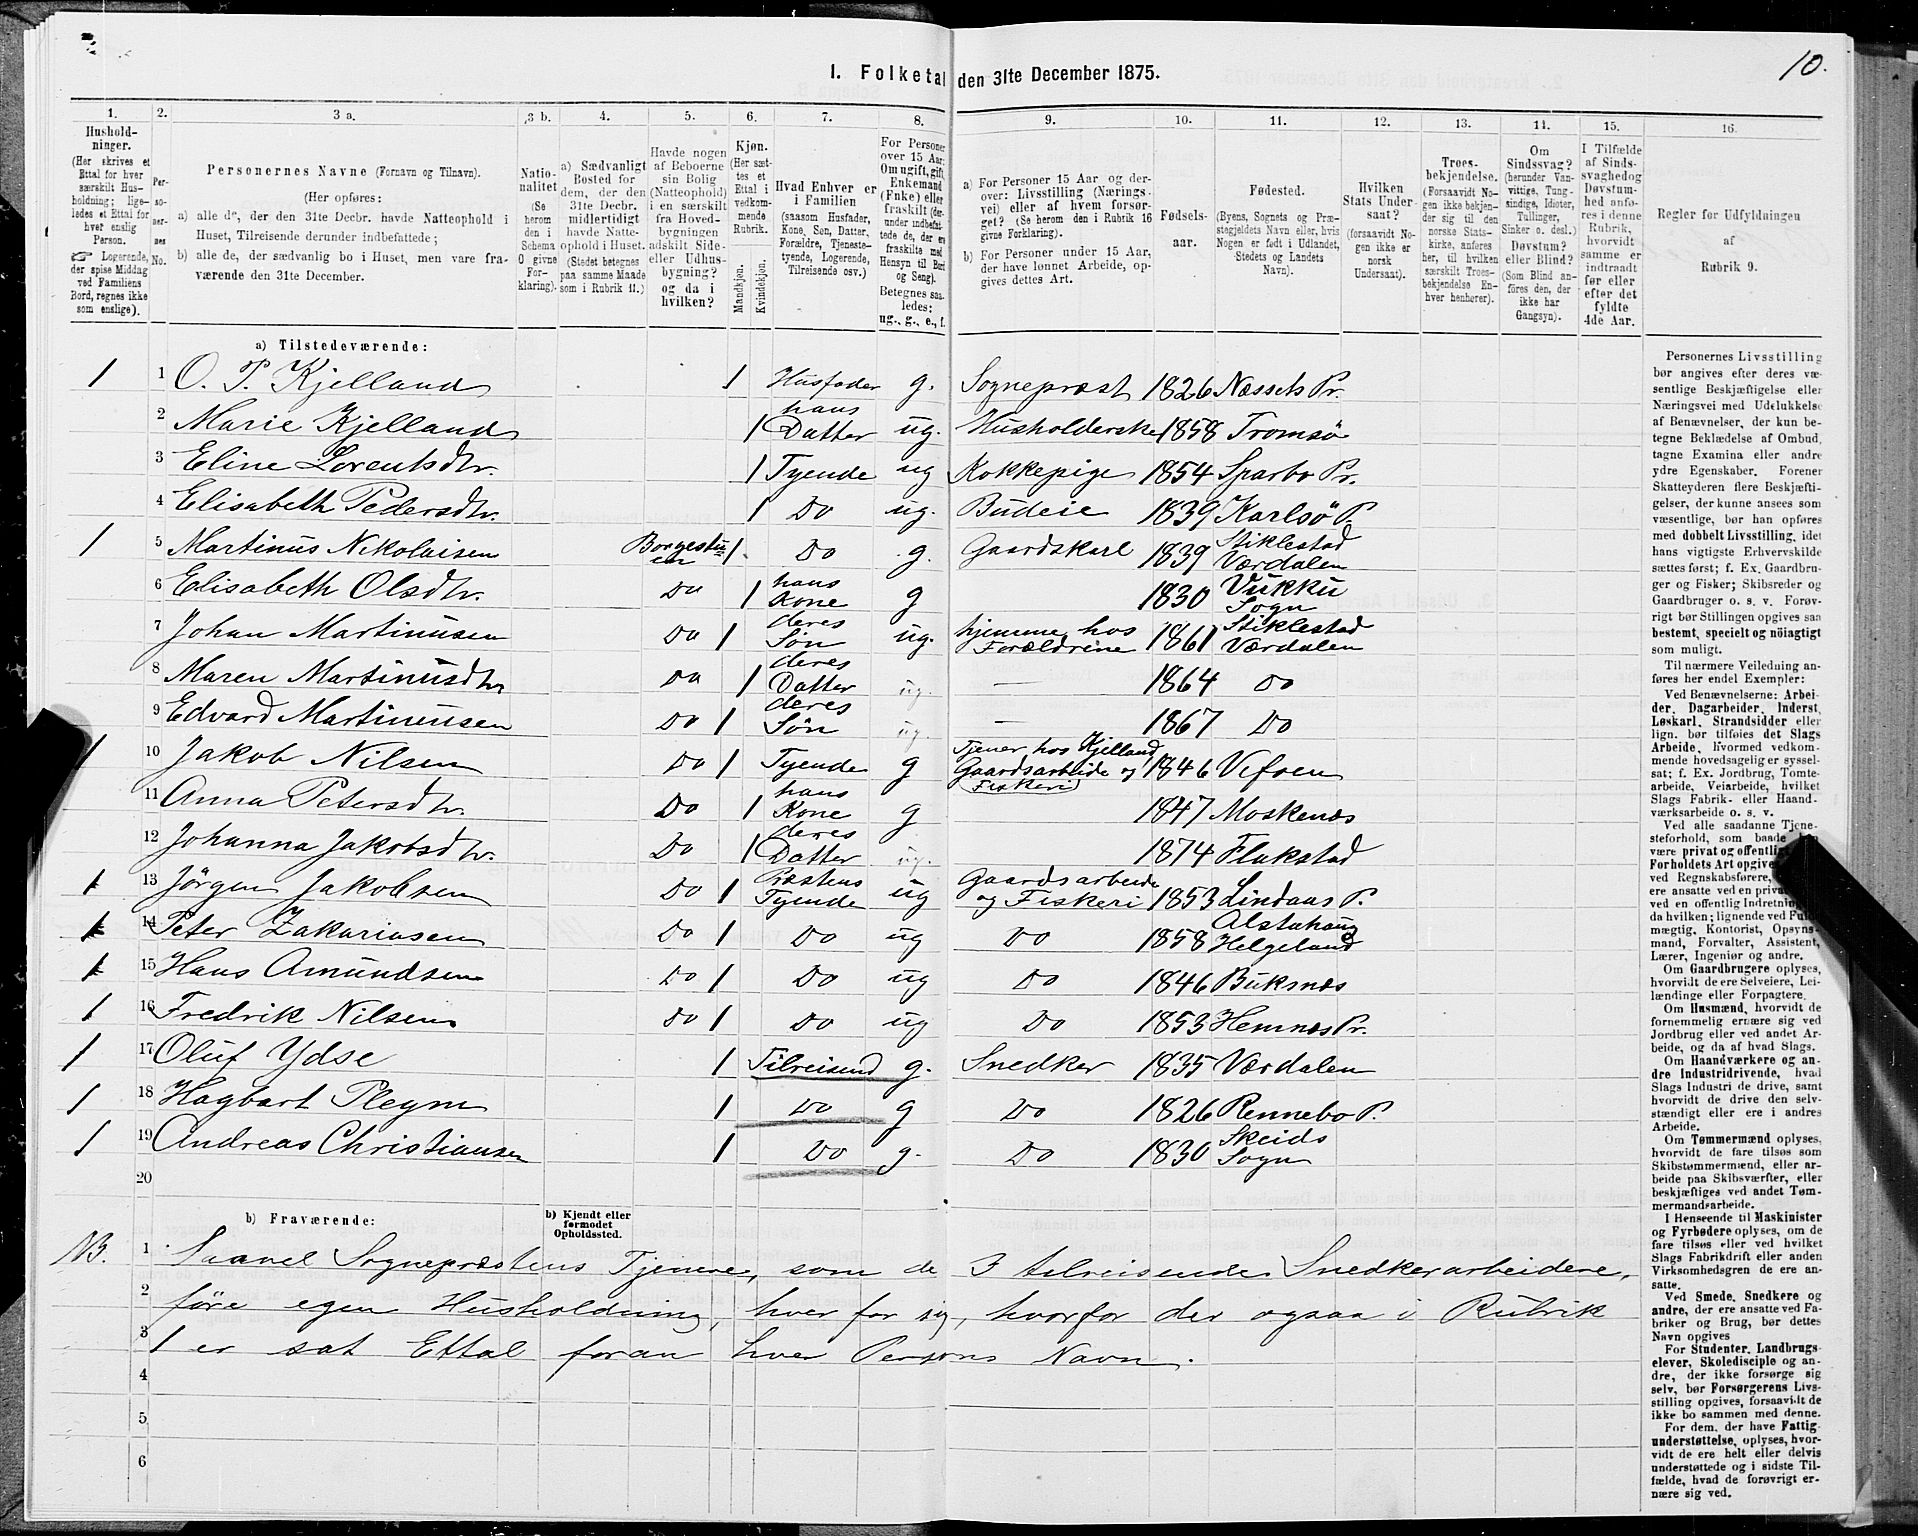 10.
1. Folketal den 31te December 1875.
1. 2. 3 a. 3 b. 4. 5. 6. 7. 8. 9. 10. 11. 12. 13. 14. 15. 16.
Hushold-
ninger.
(Her skrives et
Ettal for hver
særskilt Hus-
holdning; lige-
ledes et Ettal for
hver enslig
Person.
Logerende,
der spise Middag
ved Familiens
Bord, regnes ikke
som enslige).
Per-
so-
ner-
nes
No.
Personernes Navne (Fornavn og Tilnavn).
(Her opføres:
a) alle de, der den 31te Decbr. havde Natteophold i
Huset, Tilreisende derunder indbefattede;
b) alle de, der sædvanlig bo i Huset, men vare fra-
værende den 31te December.
Natio-
nalitet
(Se
herom
den i
Schema
O givne
For-
klaring).
a) Sædvanligt
Bosted for
dem, der den
31te Decbr.
midlertidigt
havde Natte-
ophold i Huset.
(Stedet betegnes
paa samme Maade
som i Rubrik 11.)
Havde nogen
af Beboerne
sin Bolig
(Natteophold)
i en særskilt
fra Hoved-
bygningen
adskilt Side-
eller Udhus-
bygning?
og da i
hvilken?
Kjøn.
(Her sæt-
tes et
Ettal i
vedkom-
mende
Rubrik.
Mandkjøn.
Kvindekjøn.
Hvad Enhver er
i Familien
(saasom Husfader,
Kone, Søn, Datter,
Forældre, Tjeneste-
tyende, Logerende,
Tilreisende osv.)
For Personer
over 15 Aar:
Om ugift, gift,
Enkemand
(Enke) eller
fraskilt (der-
under indbefat-
tede de, der ere
fraskilte med
Hensyn til Bord
og Seng).
Betegnes saa-
ledes:
ug., g., e., f.
a) For Personer 15 Aar og der-
over: Livsstilling (Nærings-
vei) eller af hvem forsør-
get? (Se herom den i Rubrik 16
givne Forklaring).
b) For Personer under 15 Aar,
der have lønnet Arbeide, op-
gives dettes Art.
Fødsels-
aar.
Fødested.
(Byens, Sognets og Præ-
stegjeldets Navn eller, hvis
Nogen er født i Udlandet,
Stedets og Landets
Navn).
Hvilken
Stats Under-
saat?
(forsaavidt No-
gen ikke er
norsk
Undersaat).
Troes-
bekjendelse.
(Forsaavidt No-
gen ikke bekjen-
der sig til den
norske Stats-
kirke, anføres
her, til hvilken
særskilt Troes-
bekjendelse En-
hver henhører).
Om
Sindssvag?
(herunder Van-
vittige, Tung-
sindige, Idioter,
Tullinger,
Sinker o. desl.)
Døvstum?
eller Blind?
(Som Blind an-
føres den, der
ikke har
Gangsyn).
I Tilfælde
af Sinds-
svaghed og
Døvstum-
hed anfø-
res i denne
Rubrik,
hvorvidt
samme er
indtraadt
før eller
efter det
fyldte
4de Aar.
Regler for Udfyldningen
af
Rubrik 9.
a) Tilstedeværende:
1 1 O. P. Kjelland 1 Husfader g. Sognepræst 1826 Næssets Pr.
2 Marie Kjelland 1 hans Datter ug. Husholderske 1858 Tromsø
3 Eline Lorentsdtr. 1 Tyende ug Kokkepige 1854 Sparbo Pr.
4 Elisabeth Pedersdtr. 1 Do ug. Budeie 1839 Karlsö P.
1 5 Martinus Nikolaisen Borgestuen 1. Do g. Gaardskarl 1839 Stiklestad Værdalen
6 Elisabeth Olsdtr. Do 1 hans Kone g 1830 Vukku Sogn
7 Johan Martinusen Do 1 deres Søn ug. hjemme hos Forældrene 1861 Stiklestad Værdalen
8 Maren Martinusdtr Do 1 deres Datter ug. — 1864 Do
9 Edvard Martinusen Do 1 deres Søn ug. — 1867 Do
1 10 Jakob Nilsen Do 1 Tyende g Tjener hos Kjelland Gaardsarbeide og Fiskeri 1846 Vefsen
11 Anna Petersdtr. Do 1 hans Kone g 1847 Moskenæs
12 Johanna Jakobsdtr. Do 1 deres Datter ug. 1874 Flakstad
1 13 Jörgen Jakobsen Do 1 Præstens Tyende ug Gaardsarbeide og Fiskeri 1853 Lindaas P.
1 14 Peter Zakariasen Do 1 Do ug Do 1858 Alstahaug Helgeland
1 15 Hans Amundsen Do 1 Do ug Do 1846 Buksnæs
1 16 Fredrik Nilsen Do 1 Do ug Do 1853 Hemnæs Pr.
1 17 Oluf Ydse 1 Tilreisend g. Snedker 1835 Værdalen
1 18 Hagbart Plegm 1 Do g Do 1826 Rennebo P.
1 19 Andreas Christiansen 1 Do g. Do 1830 Skeids Sogn
20
b) Fraværende:
b) Kjendt eller
formodet
Opholdssted.
NB. 1 Saavel Sognepræstens Tjenere, som de 3 tilreisende Snedkerarbeidere,
2 føre egen Husholdning, hver for sig, hvorfor der ogsaa i Rubrik
3 1 er sat Ettal foran hver Persons Navn.
4
5
6
Personernes Livsstilling
bør angives efter deres væ-
sentlige Beskjæftigelse eller
Næringsvei med Udelukkelse
af Benævnelser, der kun be-
tegne Beklædelse af Ombud,
tagne Examina eller andre
ydre Egenskaber. Forener
Skatteyderen flere Beskjæfti-
gelser, der kunne ansees som
væsentlige, bør han opføres
med dobbelt Livsstilling, idet
hans vigtigste Erhvervskilde
sættes først; f. Ex. Gaardbru-
ger og Fisker; Skibsreder og
Gaardbruger o. s. v. Forøv-
rigt bør Stillingen opgives saa
bestemt, specielt og nöiagtigt
som muligt.
Til nærmere Veiledning an-
føres her endel Exempler:
Ved Benævnelserne: Arbei-
der, Dagarbeider, Inderst,
Løskarl, Strandsidder eller
lign. bør tilføies det Slags
Arbeide, hvormed vedkom-
mende hovedsagelig er syssel-
sat; f. Ex. Jordbrug, Tomte-
arbeide, Veiarbeide, hvilket
Slags Fabrik- eller Haand-
værksarbeide o. s. v.
Ved alle saadanne Tjene-
steforhold, som baade
være privat og offentligt
Forholdets Art opgives
ved Regnskabsførere,
ere ansatte ved en privat
ved en offentlig Indretning
da hvilken; lignende ved Fuld-
mægtig, Kontorist, Opsyns-
mand, Forvalter, Assistent,
Lærer, Ingeniør og andre.
Om Gaardbrugere oplyses,
hvorvidt de ere Selveiere, Lei-
lændinge eller Forpagtere.
Om Husmænd, hvorvidt de
fornemmelig ernære sig ved
Jordbrug eller ved andet Ar-
beide, og da af hvad Slags.
Om Haandværkere og an-
dre Industridrivende, hvad
Slags Industri de drive, samt
hvorvidt de drive den selv-
stændigt eller ere i andres
Arbeide.
Om Tømmermænd oplyses,
hvorvidt de fare tilsøs som
Skibstømmermænd, eller ar-
beide paa Skibsværfter, eller
beskjæftiges ved andet Tøm-
mermandsarbeide.
I Henseende til Maskinister
og Fyrbødere oplyses, om de
fare tilsøs eller ved hvilket
Slags Fabrikdrift eller anden
Virksomhedsgren de ere an-
satte.
Ved Smede, Snedkere og
andre, der ere ansatte ved Fa-
briker og Brug, bør dettes
Navn opgives
For Studenter, Landbrugs-
elever, Skoledisciple og an-
dre, der ikke forsørge sig
selv, bør Forsørgerens Livs-
stilling opgives, forsaavidt de
ikke bo sammen med denne.
For dem, der have Fattig-
understøttelse, oplyses, hvor-
vidt de ere helt eller delvis
understøttede og i sidste Til-
fælde, hvad de forøvrigt er-
nære sig ved.